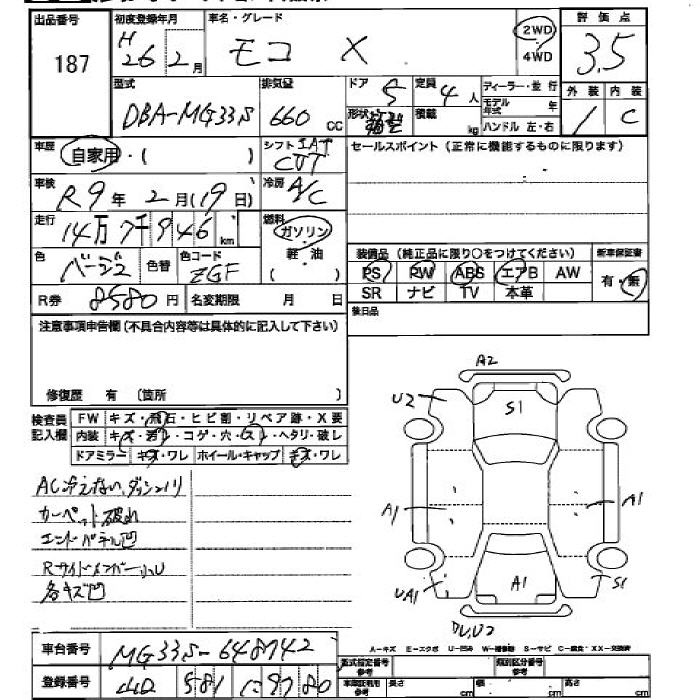 出品番号 初度登録年月 車名・グレード 評価点
187 H26 2月 モコ X 2WD 4WD 3.5
型式 排気量 ドア 定員 ディーラー・並行 外装 内装
DBA-MG33S 660 CC 5 4人 モデル年式 年 C
形状 積載 kg ハンドル 左・右
車歴 自家用・( ) シフト IAT CVT セールスポイント (正常に機能するものに限ります)
車検 R9年 2月(19日) 冷房 A/C
走行 14万7千946 km 燃料 ガソリン
軽・油
( )
色 ベージュ 色替 色コード ZGF
装備品 (純正品に限り○をつけてください) 新車保証書
PS PW ABS エアB AW 有・無
R券 8580円 名変期限 月 日 SR ナビ TV 本革
注意事項申告欄 (不具合内容等は具体的に記入して下さい) 後日品
修復歴 有 (箇所 )
検査員記入欄 FW キズ・飛石・ヒビ割・リペア跡・X要
内装 キズ・汚・コゲ・穴・スレ・ヘタリ・破し
ドアミラー キズ・ワレ ホイール・キャップ キズ・ワレ
AC冷えない、ダッシュノリ
カーペット破れ
エンドパネル凹
Rサイドメンバー小U
各キズ凹
A2
U2 S1
A1 A1
U,A1 A1 S1
車台番号 MG33S-648742
登録番号
A-キズ E-エクボ U-凹み W-補修跡 S-サビ C-腐食・XX-交換済
型式指定番号 参考 類別区分番号 参考
車庫証明利用 参考 長さ cm 幅 cm 高さ cm